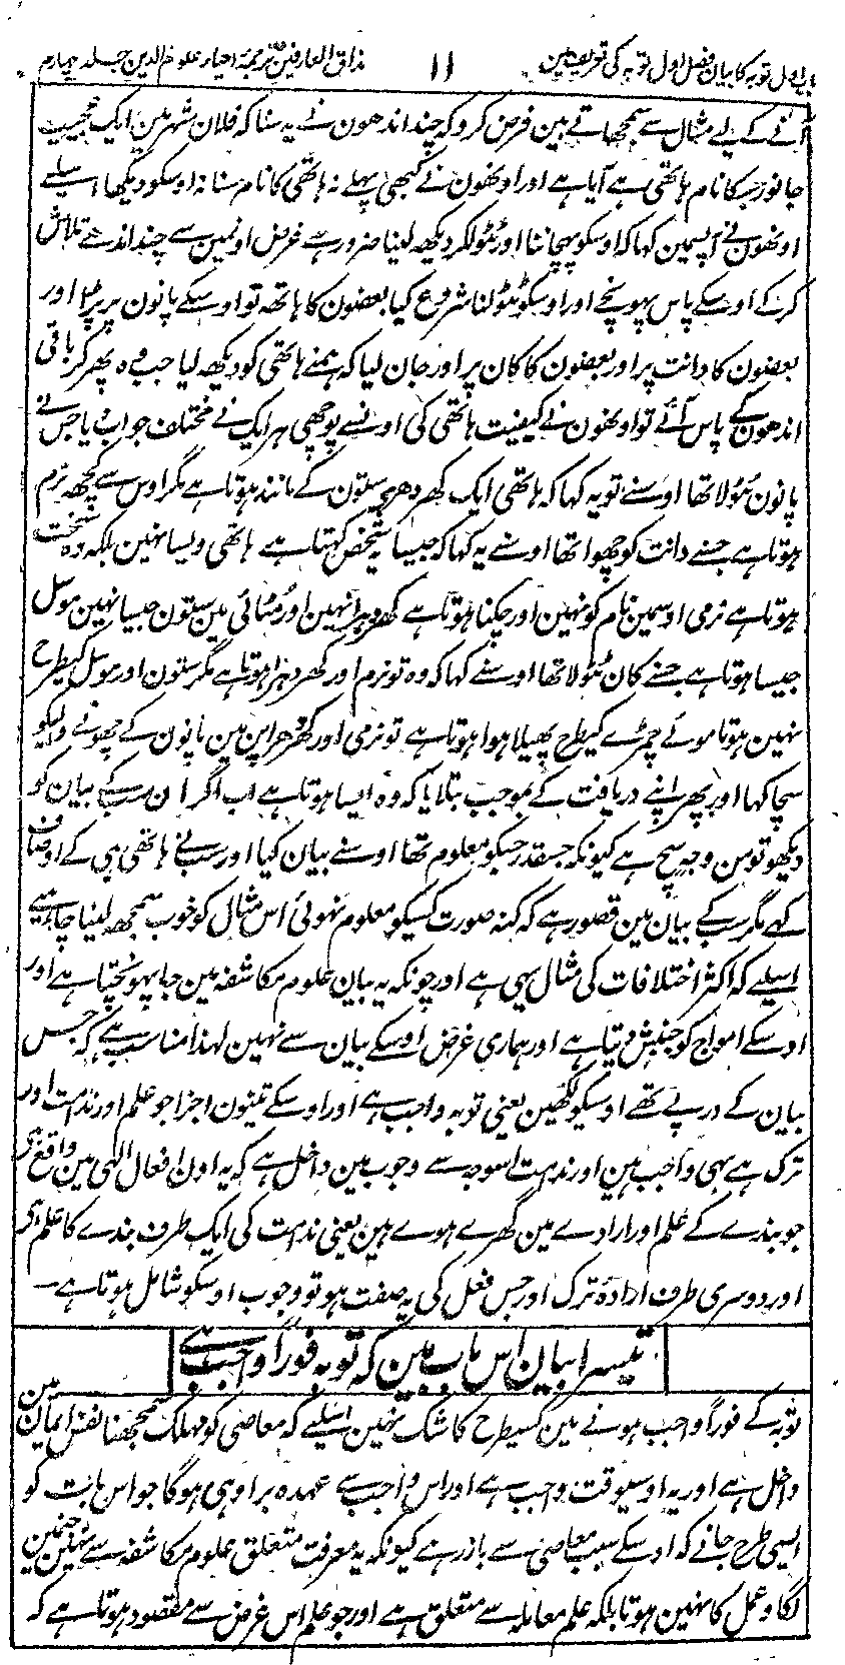 باب اول توبہ کا بیان فصل اول توبہ کی تعریف مین ۱۱ مذاق العارفین ترجمۂ احیاء علوم الدین جلد چہارم
آنے کے لیے مثال سے سمجھاتے ہین فرض کرو کہ چند اندھون نے یہ سنا کہ فلان شہر مین ایک عجیب
جانور جسکا نام ہاتھی ہے آیا ہے اور اونھون نے کبھی پہلے نہ ہاتھی کا نام سنا نہ اوسکو دیکھا اسلیے
اونھون نے آپسمین کہا کہ اوسکو پہچاننا اور ٹٹولکر دیکھ لینا ضرور ہے غرض اونمین سے چند اندھے تلاش
کرکے اوسکے پاس پہونچے اور اوسکو ٹٹولنا شروع کیا بعضون کا ہاتھ تو اوسکے پانون پر پڑا اور
بعضون کا دانت پر اور بعضون کا کان پر اور جان لیا کہ ہمنے ہاتھی کو دیکھ لیا جب وہ پھر کر باقی
اندھون کے پاس آئے تو اونھون نے کیفیت ہاتھی کی اونسے پوچھی ہر ایک نے مختلف جواب دیا جس نے
پانون ٹٹولا تھا اوسنے تو یہ کہا کہ ہاتھی ایک کھردھرے ستون کے مانند ہوتا ہے مگر اوس سے کچھ نرم
ہوتا ہے جسنے دانت کو چھوا تھا اوسنے یہ کہا کہ جیسا یہ شخص کہتا ہے ہاتھی ویسا نہین بلکہ وہ سخت
ہوتا ہے نرمی اوسمین نام کو نہین اور چکنا ہوتا ہے کھردہرا نہین اور مُٹائی مین ستون جیسا نہین موسل
جیسا ہوتا ہے جسنے کان ٹٹولا تھا اوسنے کہا کہ وہ تو نرم اور کھردہرا ہوتا ہے مگر ستون اور موسل کیطرح
نہین ہوتا موٹے چمڑے کیطرح پھیلا ہوا ہوتا ہے تو نرمی اور کھردہراپن مین پانون کے چھونے والیکو
سچا کہا اور پھر اپنے دریافت کے بموجب بتلایا کہ وہ ایسا ہوتا ہے اب اگر ان سب کے بیان کو
دیکھو تو من وجہ سچ ہے کیونکہ جسقدر جسکو معلوم تھا اوسنے بیان کیا اور سب نے ہاتھی ہی کے اوصاف
کہے مگر سب کے بیان مین قصور ہے کہ کنہ صورت کسیکو معلوم نہوئی اس مثال کو خوب سمجھ لینا چاہیے
اسلیے کہ اکثر اختلافات کی مثال یہی ہے اور چونکہ یہ بیان علوم مکاشفہ مین جا پہونچتا ہے اور
اوسکے امواج کو جنبش دیتا ہے اور ہماری غرض اوسکے بیان سے نہین لہذا مناسب ہے کہ جس
بیان کے درپے تھے اوسیکو لکھین یعنی توبہ واجب ہے اور اوسکے تینون اجزا جو علم اور ندامت اور
ترک ہے بھی واجب ہین اور ندامت اسوجہ سے وجوب مین داخل ہے کہ یہ اون افعال الٰہی مین واقع ہی
جو بندے کے علم اور ارادے مین گھرے ہوے ہین یعنی ندامت کی ایک طرف بندے کا علم ہی
اور دوسری طرف ارادۂ ترک اور جس فعل کی یہ صفت ہو تو وجوب اوسکو شامل ہوتا ہے۔
تیسرا بیان اس باب مین کہ توبہ فوراً واجب ہے
توبہ کے فوراً واجب ہونے مین کسیطرح کا شک نہین اسلیے کہ معاصی کو مہلک سمجھنا نفس ایمان مین
داخل ہے اور یہ اوسیوقت واجب ہے اور اس واجب سے عہدہ برا وہی ہوگا جو اس بات کو
ایسی طرح جانے کہ اوسکے سبب معاصی سے باز رہے کیونکہ یہ معرفت متعلق علوم مکاشفہ سے نہین جنمین
لگاو عمل کا نہین ہوتا بلکہ علم معاملہ سے متعلق ہے اور جو علم اس غرض سے مقصود ہوتا ہے کہ